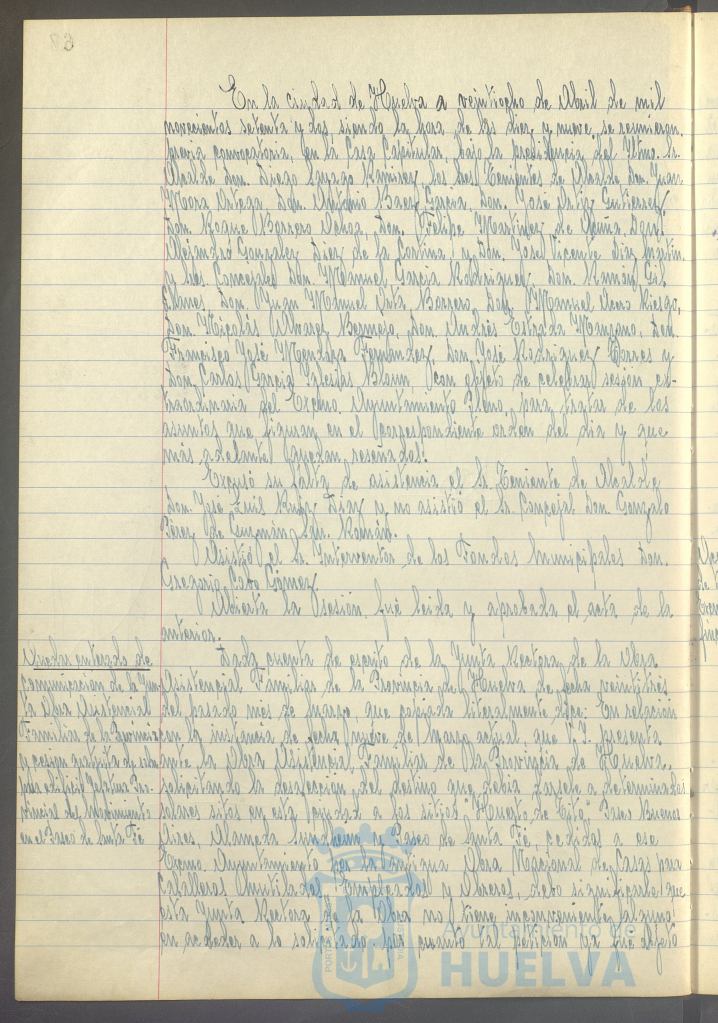 En la ciudad de Huelva a veintiocho de Abril de mil
novecientos setenta y dos, siendo la hora de las diez y nueve, se reunieron,
previa convocatoria, en la Casa Capitular, bajo la presidencia del Iltmo. Sr.
Alcalde Don Diego Sayago Ramírez, los Sres. Tenientes de Alcalde Don Juan
Mora Ortega, Don Antonio Baez Garcia, Don José Ortiz Gutierrez,
Don Roque Borrero Ochoa, Don Felipe Martinez de Acuña,
Alejandro Gonzalez Diez de la Cortina y Don José Vicente Diaz Martin
y los Concejales Don Manuel Garcia Rodriguez, Don Ramón Gil
Don Juan Manuel Orta Borrero, Don Manuel Riesgo,
Don Nicolás Alvarez Bermejo, Don Andrés Estrada Manzano, Don
Francisco José Mendoza Fernandez, Don José Rodriguez Torres y
Don Carlos Garcia Iglesias Blown, con objeto de celebrar sesión ex-
traordinaria del Excmo. Ayuntamiento Pleno, para tratar de los
asuntos que figuran en el correspondiente orden del dia y que
más adelante quedan reseñados.
Excusó su falta de asistencia el Sr. Teniente de Alcalde
Don José Luis Ruiz Diaz y no asistió el Sr. Concejal Don Gonzalo
Pérez de Guzmán San Román.
Asistió el Sr. Interventor de los Fondos Municipales Don
Gregorio Gómez.
Abierta la sesión, fué leida y aprobada el acta de la
anterior.
Quedar enterado de
comunicación de la Jun-
ta Obra Asistencial
Familiar de la Provincia
y cesion gratuita de
para edificio Jefatura Pro-
vincial de Movimiento
en el Paseo de Santa Fé
Dada cuenta de escrito de la Junta Rectora de la Obra
Asistencial Familiar de la Provincia de Huelva de fecha veintitrés
del pasado mes de marzo, que copiada literalmente dice: En relacion
con la instancia de fecha nueve de marzo actual, que V.I. presenta
ante la Obra Asistencial Familiar de la Provincia de Huelva
solicitando la del destino que debia darsele a determinados
solares sitos en esta Ciudad a los sitios "Huerto de Tito", Paseo Buenos
Aires, Alameda Sundheim y Paseo de Santa Fé, cedidos a ese
Excmo. Ayuntamiento por la antigua Obra Nacional de Casas para
Caballeros Mutilados, Empleados y Obreros, debo significarle que
esta Junta Rectora de la Obra no tiene inconveniente alguno
en acceder a lo solicitado por cuanto tal peticion ya fué objeto
Ayuntamiento de
HUELVA